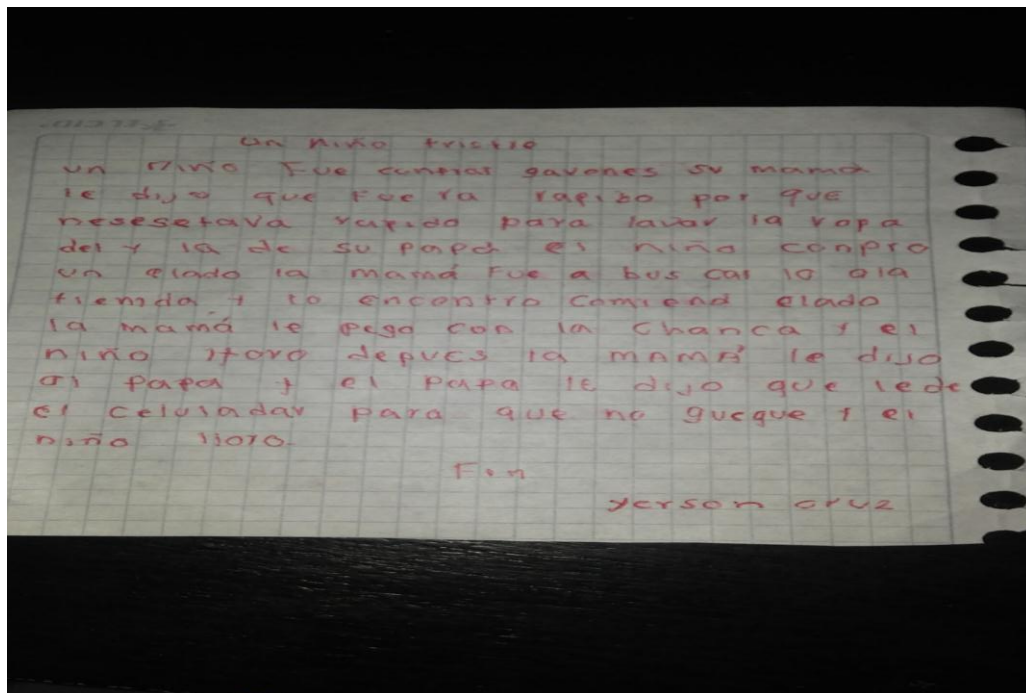 un niño tristte
un niño Fue conprar gavones su mamá
le dijo que Fue ra rapido por que
nesesetava rapido para lavar la ropa
del y la de su papá el niño conpro
un elado la mamá Fue a bus car lo ala
tienda y lo encontro comiend elado
la mamá le pego con la chanca y el
niño lloro depues la mamá le dijo
al papa y el papa le dijo que lede
el celuladar para que no gueque y el
niño lloro.
Fin
yerson cruz